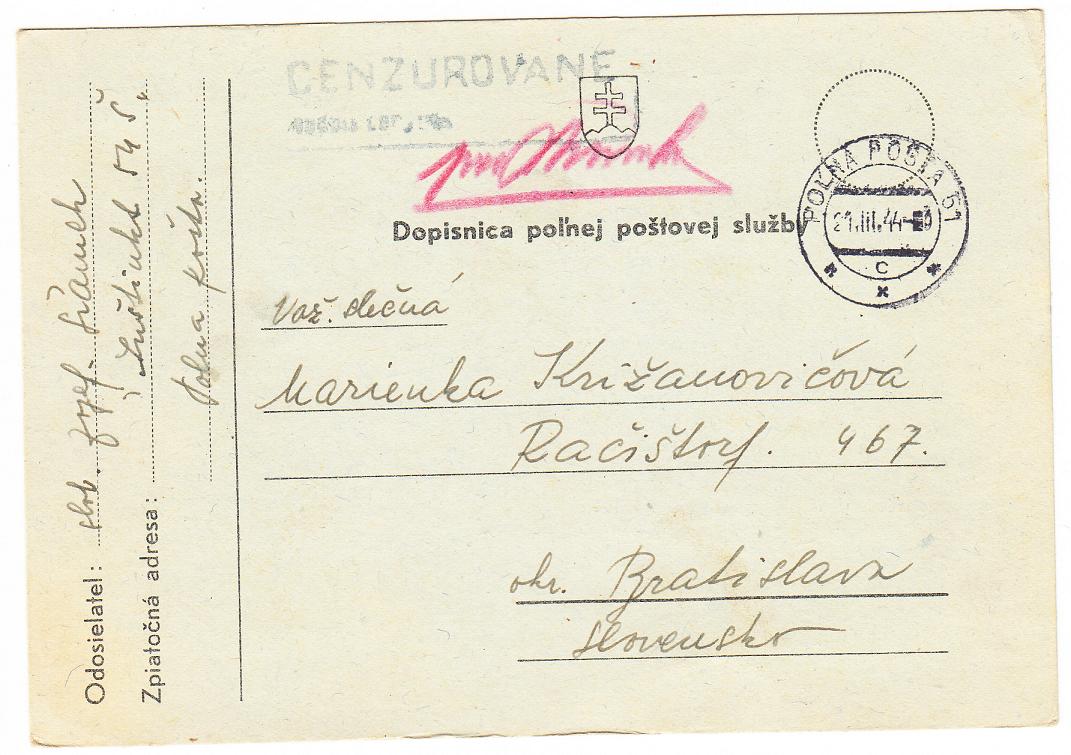 CENZUROVANÉ
Dopisnica poľnej poštovej služby
POĽNA POŠTA 51
21.III.44
C
Važ. slečná
Marienka Križanovičová
Račištorf. 467.
okr. Bratislava
Slovensko
Odosielateľ: slob. Jozef
Zpiatočná adresa:
Poľna pošta.